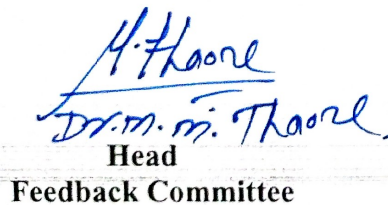 M.Thaore
Dr.M.M.Thaore.
Head
Feedback Committee